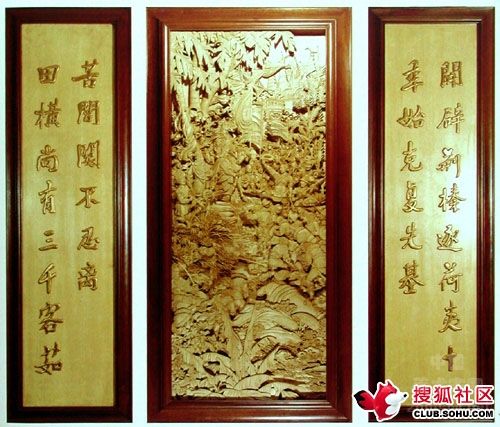 開辟荆榛逐荷夷十
年始克复先基
田橫尚有三千客茹
苦間關不忍离
搜狐社区
CLUB.SOHU.COM